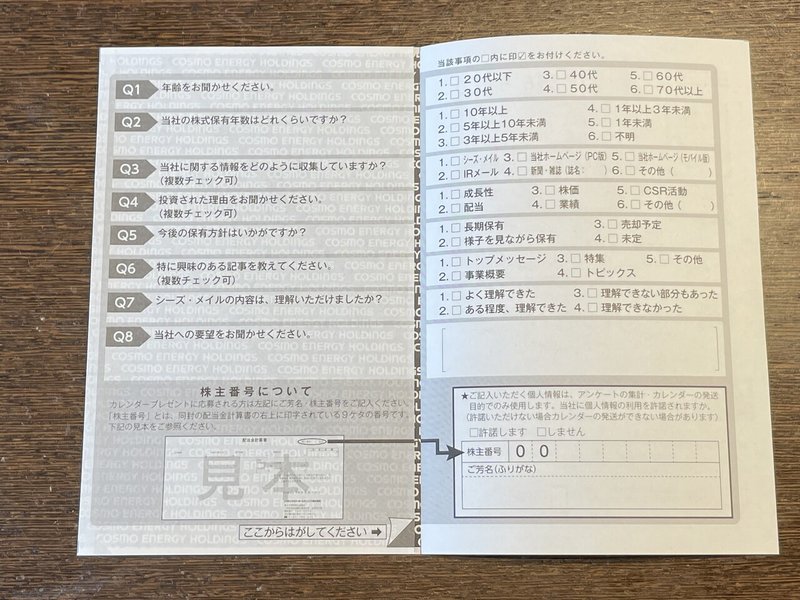 COSMO ENERGY HOLDINGS
Q1 年齢をお聞かせください。
Q2 当社の株式保有年数はどれくらいですか？
Q3 当社に関する情報をどのように収集していますか？
(複数チェック可)
Q4 投資された理由をお聞かせください。
(複数チェック可)
Q5 今後の保有方針はいかがですか？
Q6 特に興味のある記事を教えてください。
(複数チェック可)
Q7 シーズ・メイルの内容は、理解いただけましたか？
Q8 当社への要望をお聞かせください。
株主番号について
カレンダープレゼントに応募される方は左記にご芳名・株主番号をご記入ください。
「株主番号」とは、同封の配当金計算書の右上に印字されている9ケタの番号です。
下記の見本をご参照ください。
配当金計算書
見本
ここからはがしてください
当該事項の□内に印☑をお付けください。
1. □ 20代以下 3. □ 40代 5. □ 60代
2. □ 30代 4. □ 50代 6. □ 70代以上
1. □ 10年以上 4. □ 1年以上3年未満
2. □ 5年以上10年未満 5. □ 1年未満
3. □ 3年以上5年未満 6. □ 不明
1. □ シーズ・メイル 3. □ 当社ホームページ(PC版) 5. □ 当社ホームページ(モバイル版)
2. □ IRメール 4. □ 新聞・雑誌(誌名: ) 6. □ その他( )
1. □ 成長性 3. □ 株価 5. □ CSR活動
2. □ 配当 4. □ 業績 6. □ その他( )
1. □ 長期保有 3. □ 売却予定
2. □ 様子を見ながら保有 4. □ 未定
1. □ トップメッセージ 3. □ 特集 5. □ その他
2. □ 事業概要 4. □ トピックス
1. □ よく理解できた 3. □ 理解できない部分もあった
2. □ ある程度、理解できた 4. □ 理解できなかった
★ご記入いただく個人情報は、アンケートの集計・カレンダーの発送
目的でのみ使用します。当社に個人情報の利用を許諾されますか。
(許諾いただけない場合カレンダーの発送ができない場合があります)
□許諾します □しません
株主番号 0 0
ご芳名(ふりがな)